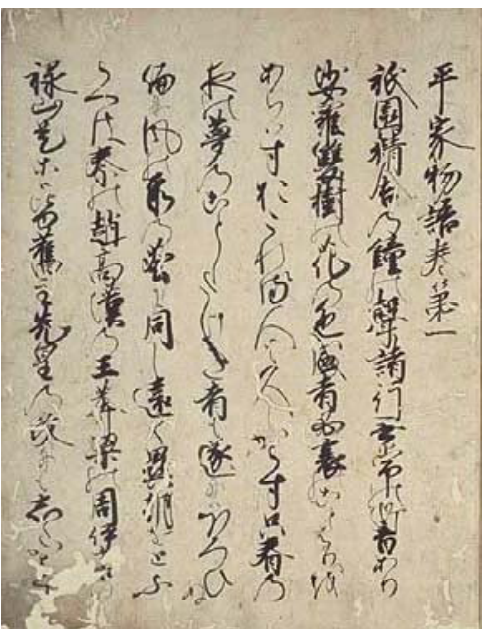 平家物語巻第一
祇園精舎の鐘の聲諸行無常の響あり
娑羅雙樹の花の色盛者必衰のことはりを
あらはすおこれる人も久しからす只春の
夜の夢のことしたけき者も遂にはほろひぬ
偏に風の前の塵に同し遠く異朝をとふ
らへは秦の趙高漢の王莽梁の周伊唐の
禄山是等は皆舊主先皇の政にもしたかは